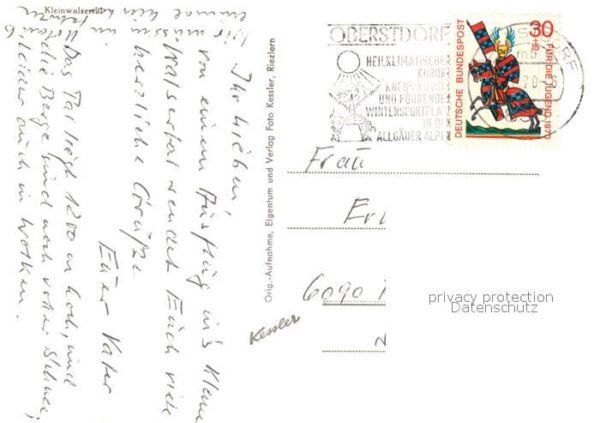 Kleinwalsertal
Ihr Lieben,
von einem Ausflug in's Kleine
Walsertal sendet Euch viele
herzliche Grüße
Euer Vater
Das Tal liegt 1200 m hoch, und
die Berge sind noch voller Schnee,
leider auch in Wolken.
Wir müssen
einmal hier
Orig.-Aufnahme, Eigentum und Verlag Foto Kessler, Riezlern
Kessler
OBERSTDORF
HEILKLIMATISCHER
KURORT
KNEIPPKURORT
UND FÜHRENDER
WINTERSPORTPLATZ
IN DEN
ALLGÄUER ALPEN
DEUTSCHE BUNDESPOST
30
+15
FÜR DIE JUGEND 1970
Frau
6090
privacy protection
Datenschutz